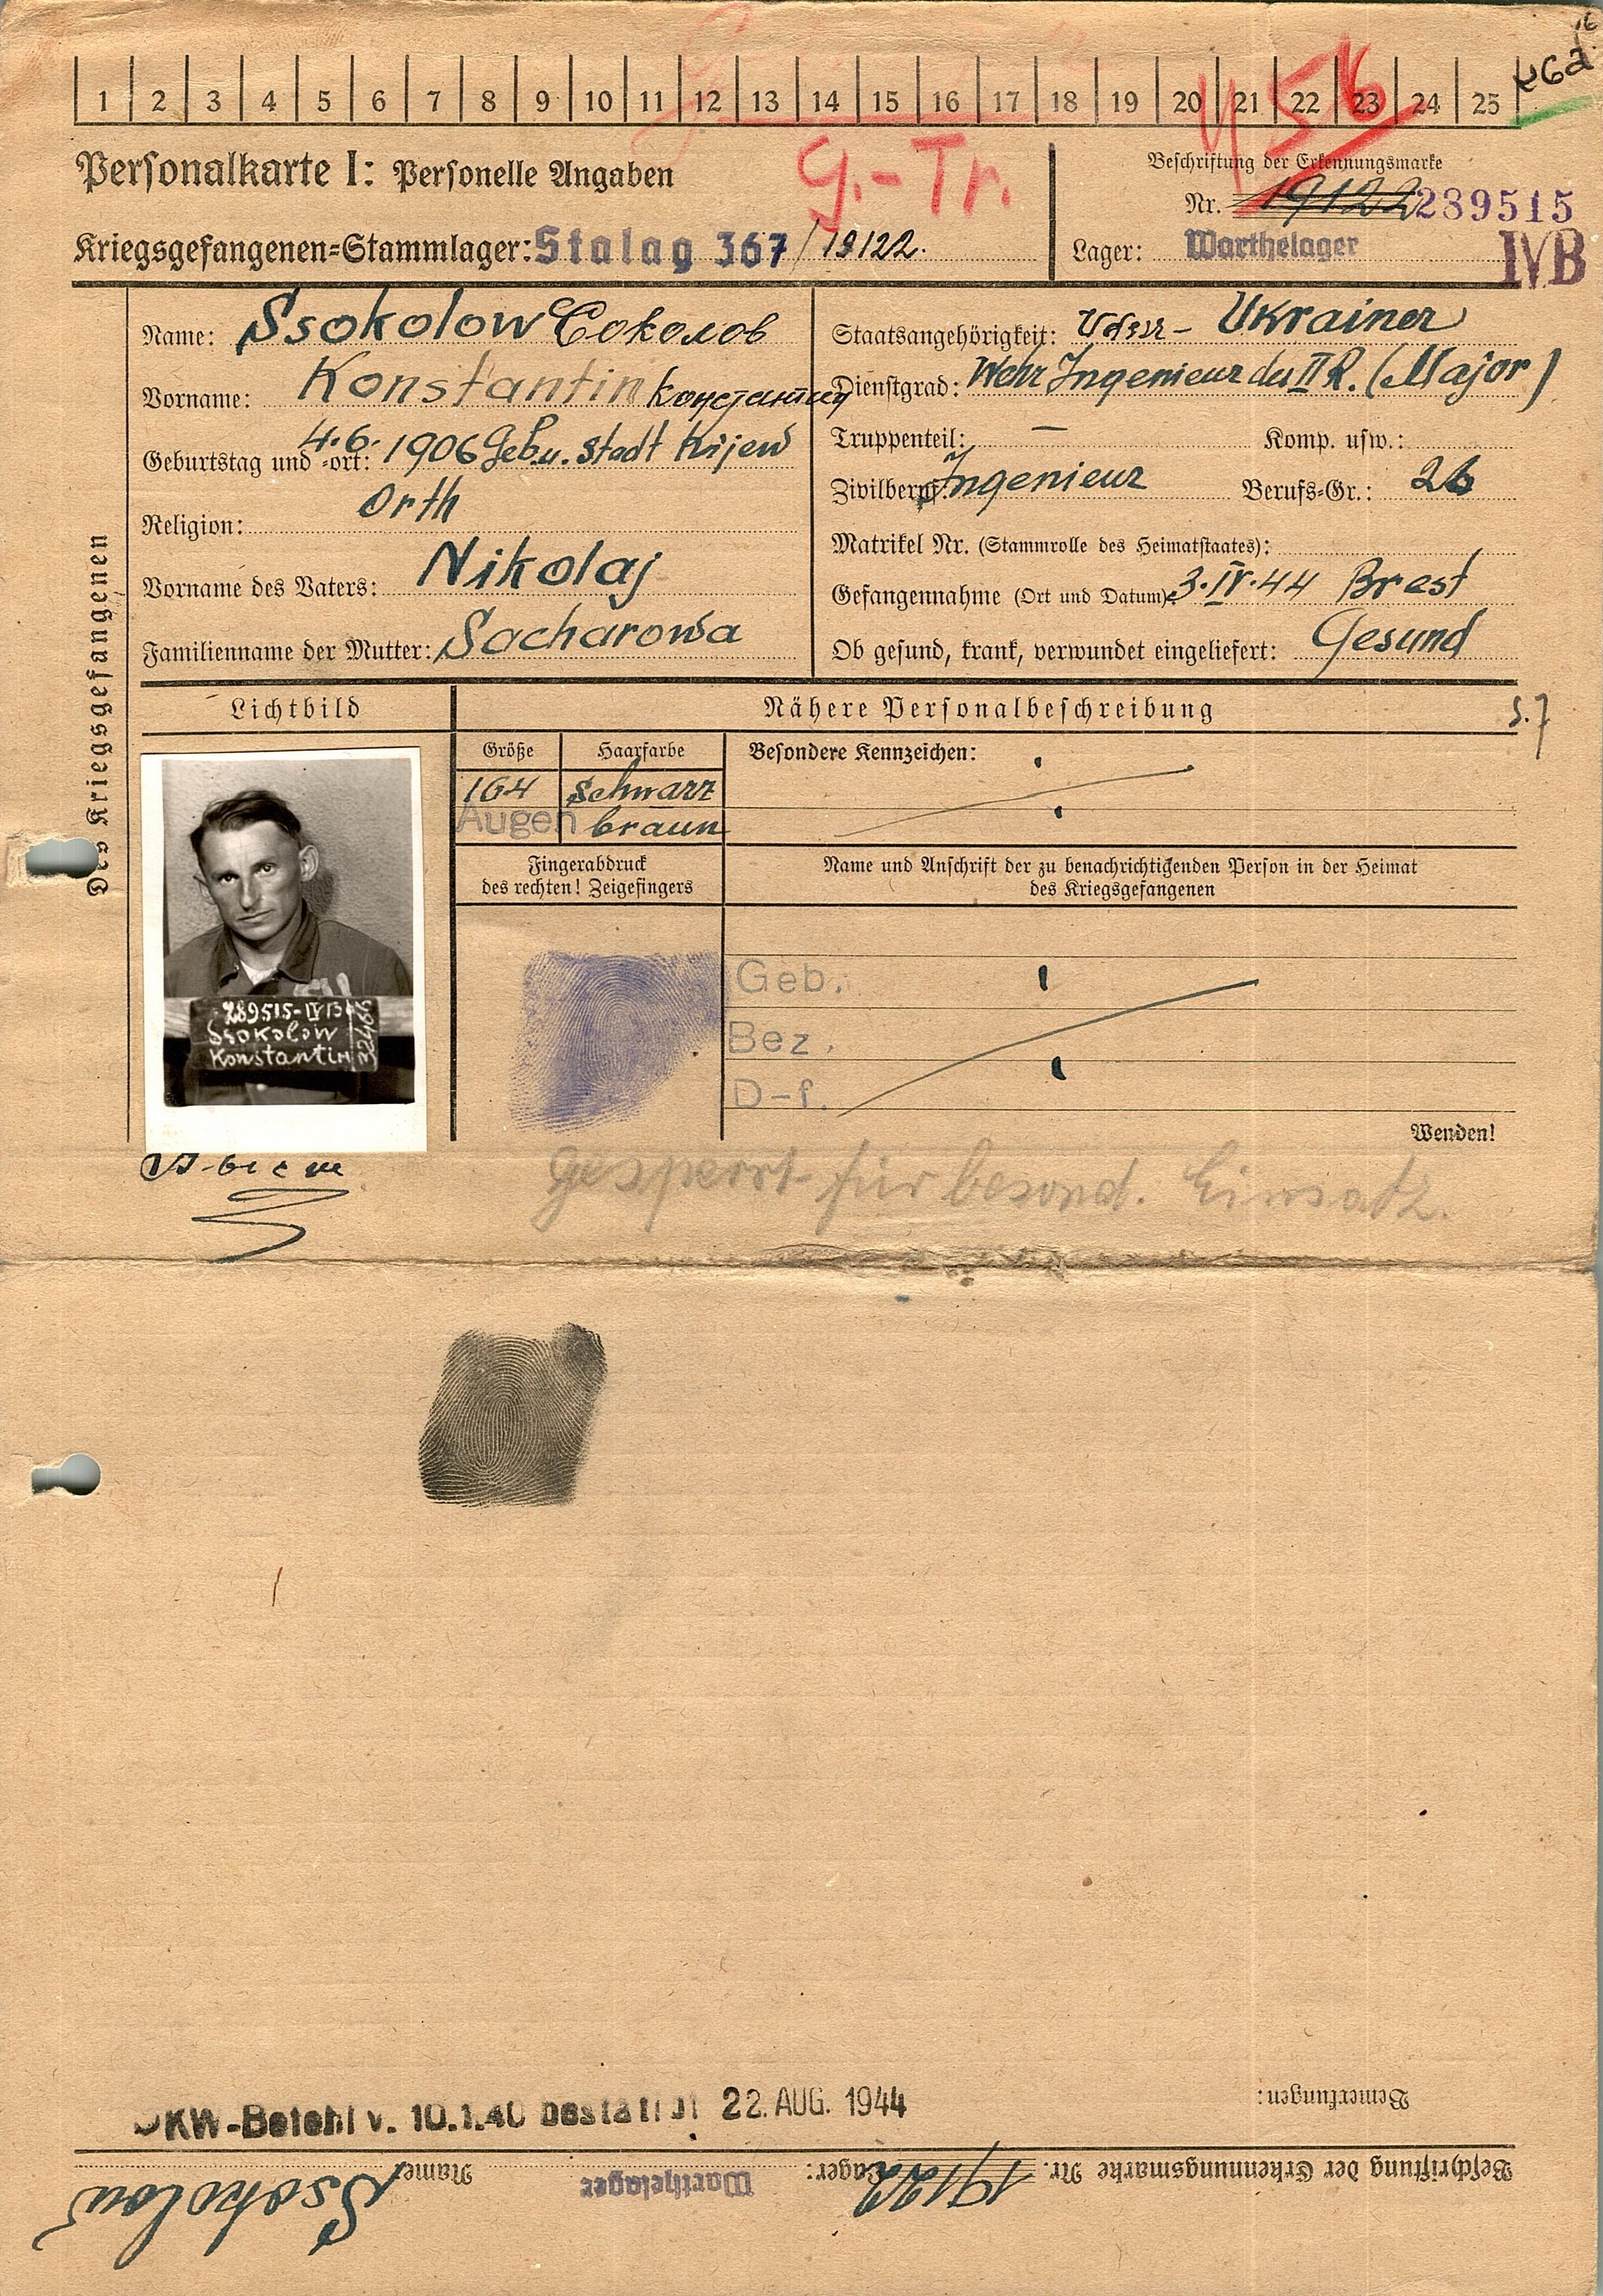 1 2 3 4 5 6 7 8 9 10 11 12 13 14 15 16 17 18 19 20 21 22 23 24 25
456
G.-Tr.
Personalkarte I: Personelle Angaben
Kriegsgefangenen-Stammlager: Stalag 367 / 19122.
Beschriftung der Erkennungsmarke
Nr. 19122 289515
Lager: Warthelager IVB
Des Kriegsgefangenen
Name: Ssokolow Соколов
Vorname: Konstantin Константин
Geburtstag und -ort: 4.6.1906 Geb. u. Stadt Kijew
Religion: Orth
Vorname des Vaters: Nikolaj
Familienname der Mutter: Sacharowa
Staatsangehörigkeit: Udssr- Ukrainer
Dienstgrad: Wehr Ingenieur des II R. (Major)
Truppenteil: — Komp. usw.:
Zivilberuf: Ingenieur Berufs-Gr.: 26
Matrikel Nr. (Stammrolle des Heimatstaates):
Gefangennahme (Ort und Datum): 3.IV.44 Brest
Ob gesund, krank, verwundet eingeliefert: Gesund
Lichtbild
Nähere Personalbeschreibung
S.7
Größe Haarfarbe
164 schwarz
Augen braun
Besondere Kennzeichen:
Fingerabdruck
des rechten! Zeigefingers
Name und Anschrift der zu benachrichtigenden Person in der Heimat
des Kriegsgefangenen
289515-IVB
Ssokolow
Konstantin
Geb.:
Bez.
D-f.
Wenden!
Gesperrt für besond. Einsatz.
OKW-Befehl v. 10.1.40 bestätigt 22. AUG. 1944
Bemerkungen:
Beschriftung der Erkennungsmarke Nr. 19122 Lager: Warthelager Name: Ssokolow